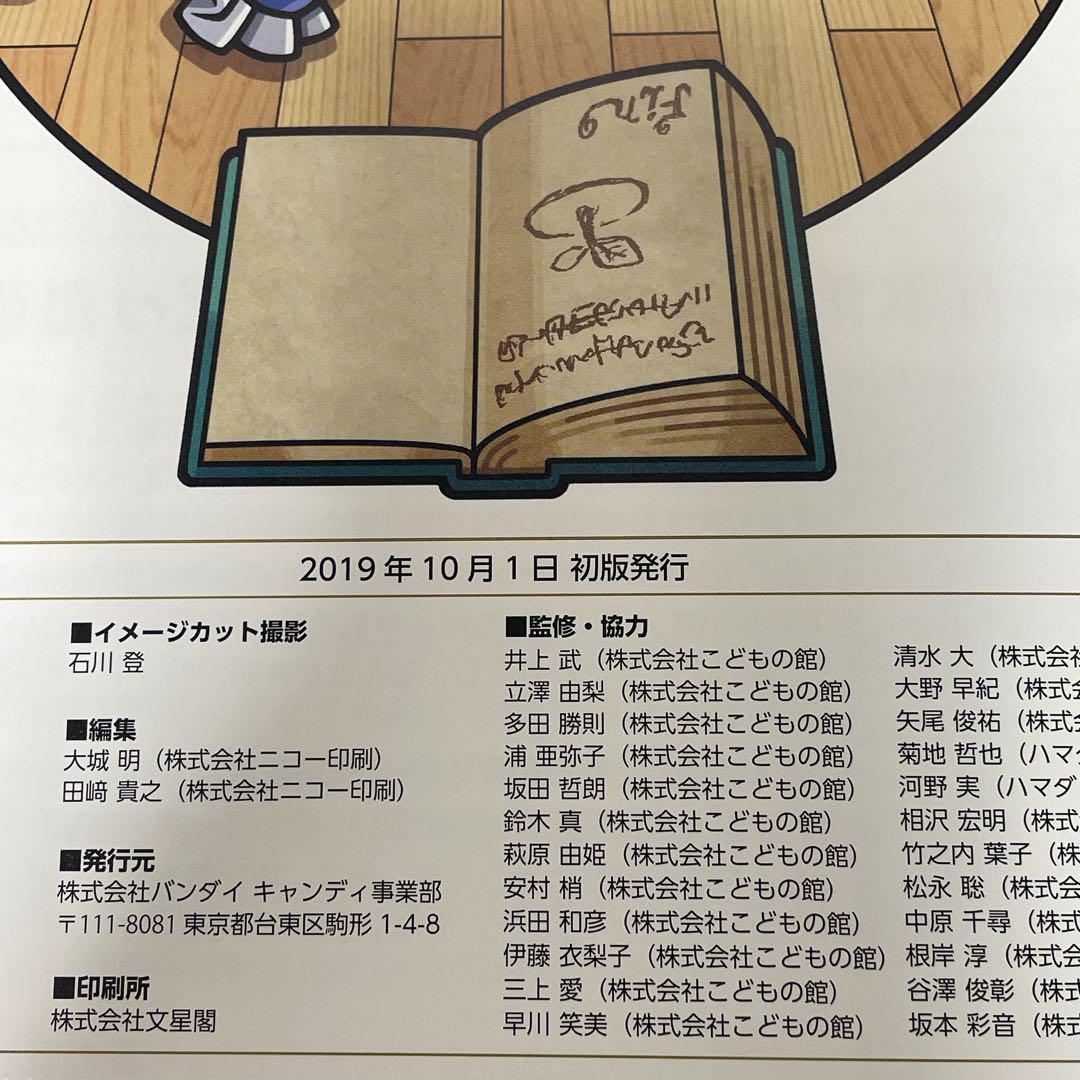 Fin
2019年10月1日 初版発行
■イメージカット撮影
石川 登
■編集
大城 明（株式会社ニコー印刷）
田﨑 貴之（株式会社ニコー印刷）
■発行元
株式会社バンダイ キャンディ事業部
〒111-8081 東京都台東区駒形 1-4-8
■印刷所
株式会社文星閣
■監修・協力
井上 武（株式会社こどもの館）
立澤 由梨（株式会社こどもの館）
多田 勝則（株式会社こどもの館）
浦 亜弥子（株式会社こどもの館）
坂田 哲朗（株式会社こどもの館）
鈴木 真（株式会社こどもの館）
萩原 由姫（株式会社こどもの館）
安村 梢（株式会社こどもの館）
浜田 和彦（株式会社こどもの館）
伊藤 衣梨子（株式会社こどもの館）
三上 愛（株式会社こどもの館）
早川 笑美（株式会社こどもの館）
清水 大（株式会社
大野 早紀（株式会
矢尾 俊祐（株式会
菊地 哲也（ハマダ
河野 実（ハマダ
相沢 宏明（株式
竹之内 葉子（株
松永 聡（株式会
中原 千尋（株式
根岸 淳（株式会
谷澤 俊彰（株式
坂本 彩音（株式